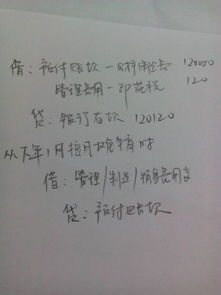 借：预付账款—财产保险 120000
管理费用—印花税 120
贷：银行存款 120120
从下年1月按月摊销时
借：管理/制造/销售费用等
贷：预付账款